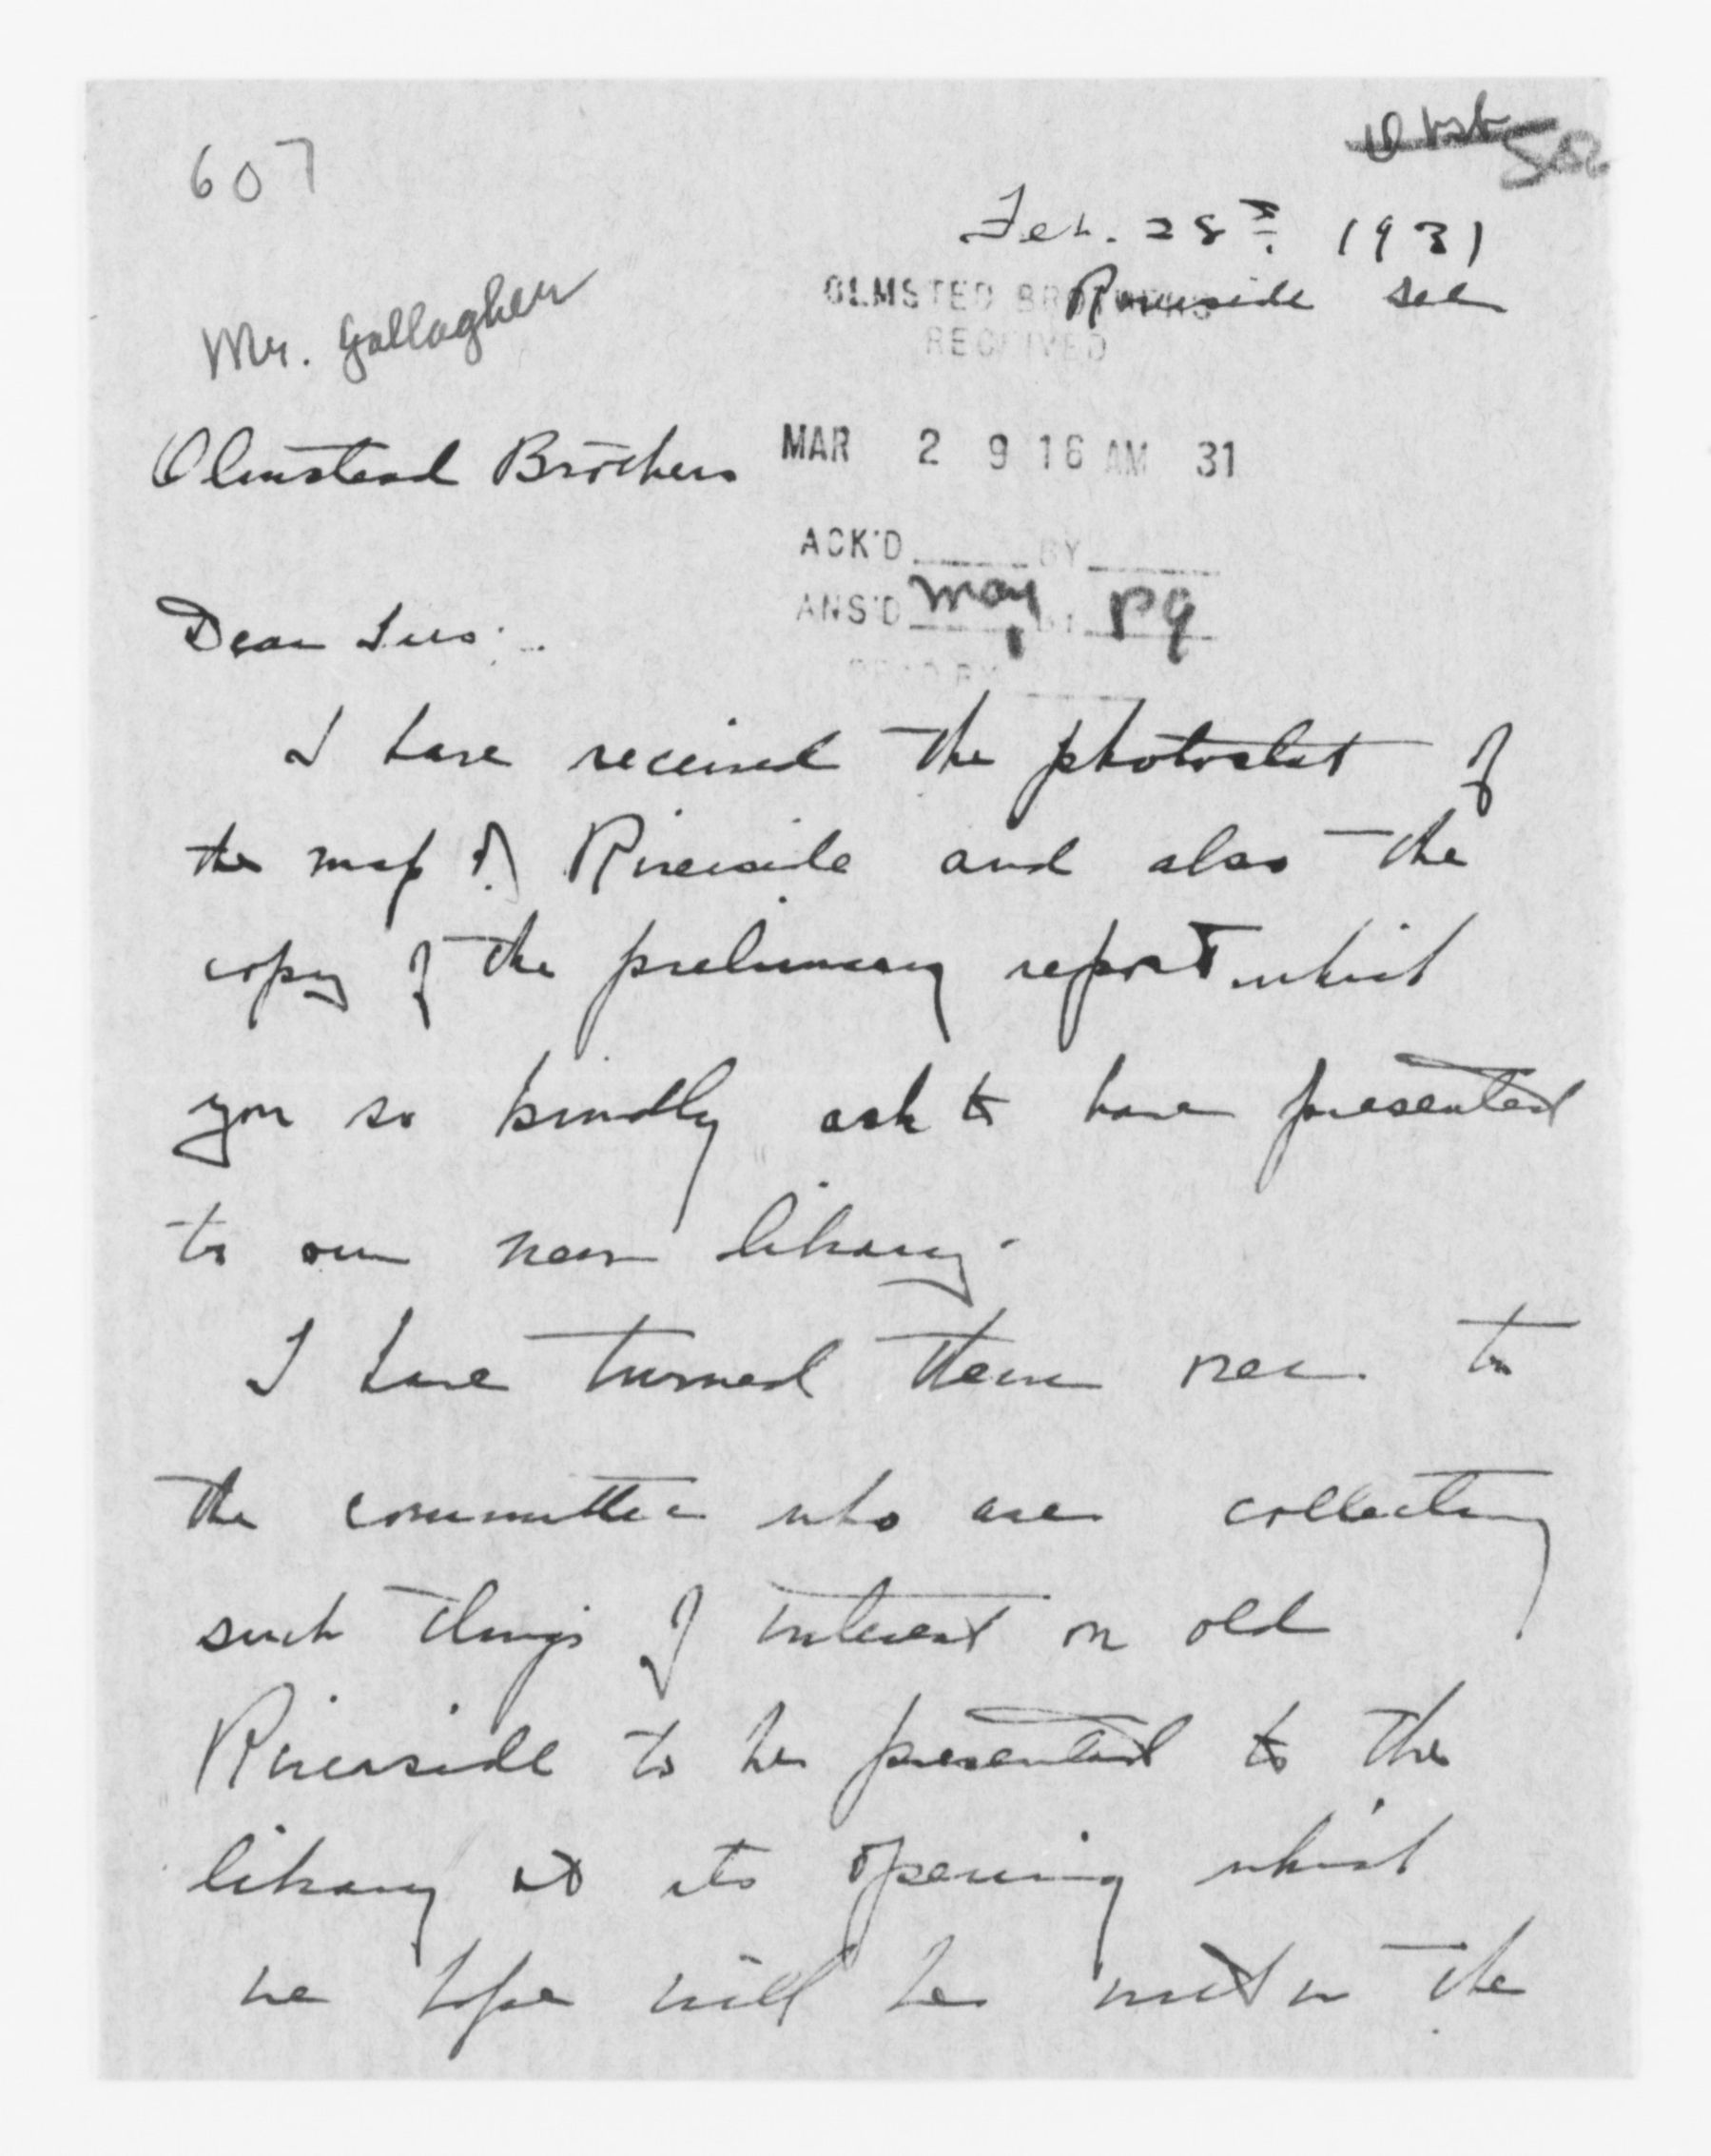 607
Feb. 28th 1931
Riverside Ill
OLMSTED BROTHERS
RECEIVED
Mr. Gallagher
Olmstead Brothers
MAR 2 9 16 AM 31
ACK'D BY
ANS'D May 1 BY PG
Dear Sirs:-
I have received the photostat of
the map of Riverside and also the
copy of the preliminary report which
you so kindly ask to have presented
to our new library.
I have turned them over to
the committee who are collecting
such things of interest on old
Riverside to be presented to the
library at its opening which
we hope will be within the